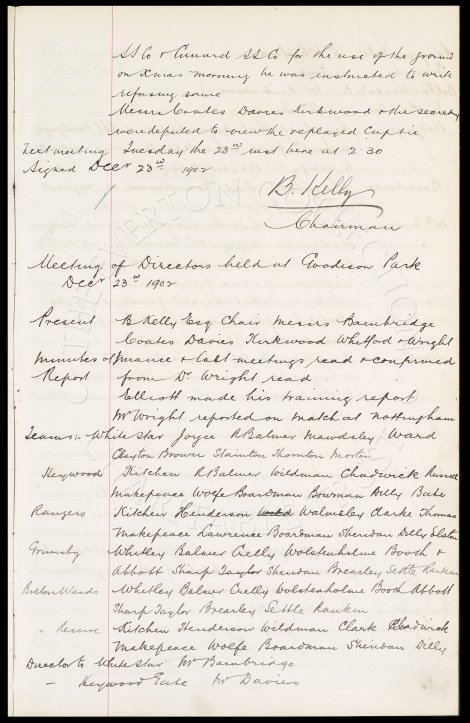 SS Co & Cunard SS Co for the use of the ground
on Xmas morning he was instructed to write
refusing same
Messrs Coates Davies Kirkwood & the secretary
were deputed to view the replayed Cup tie
Next meeting Tuesday the 23rd inst here at 2.30
Signed Decr 23rd 1902
B. Kelly
Chairman
Meeting of Directors held at Goodison Park
Decr 23rd 1902
Present B Kelly Esq Chair Messrs Bainbridge
Coates Davies Kirkwood Whitford & Wright
Minutes of finance & last meetings read & confirmed
Report from Dr Wright read
Elliott made his training report
Mr Wright reported on match at Nottingham
Teams:- White Star Joyce R Balmer Mawdsley Ward
Clayton Brown Stainton Thornton Morton
Heywood Kitchen R Balmer Wildman Chadwick Russell
Makepeace Wolfe Boardman Bowman Dilly Bate
Rangers Kitchen Henderson Walmsley Clarke Thomas
Makepeace Lawrence Boardman Sheridan Dilly
Grimsby Whitley Balmer Crelly Wolstenholme Booth &
Abbott Sharp Taylor Sheridan Brearley Settle Rankin
Bolton Wands Whitley Balmer Crelly Wolstenholme Booth Abbott
Sharp Taylor Brearley Settle Rankin
" Reserve Kitchen Henderson Wildman Clark Chadwick
Makepeace Wolfe Boardman Sheridan Dilly
Director to White Star Mr Bainbridge
- Heywood Mr Davies
THE EVERTON COLLECTION